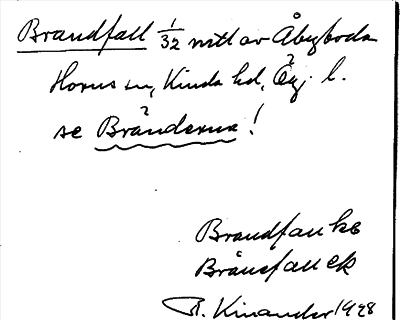 Brandfall 1/32 mtl av Åbyboda
Horns sn, Kinda hd, Ög. l.
se Bränderna!
Brandfanks
Brånefallek
R. Kinander 1928